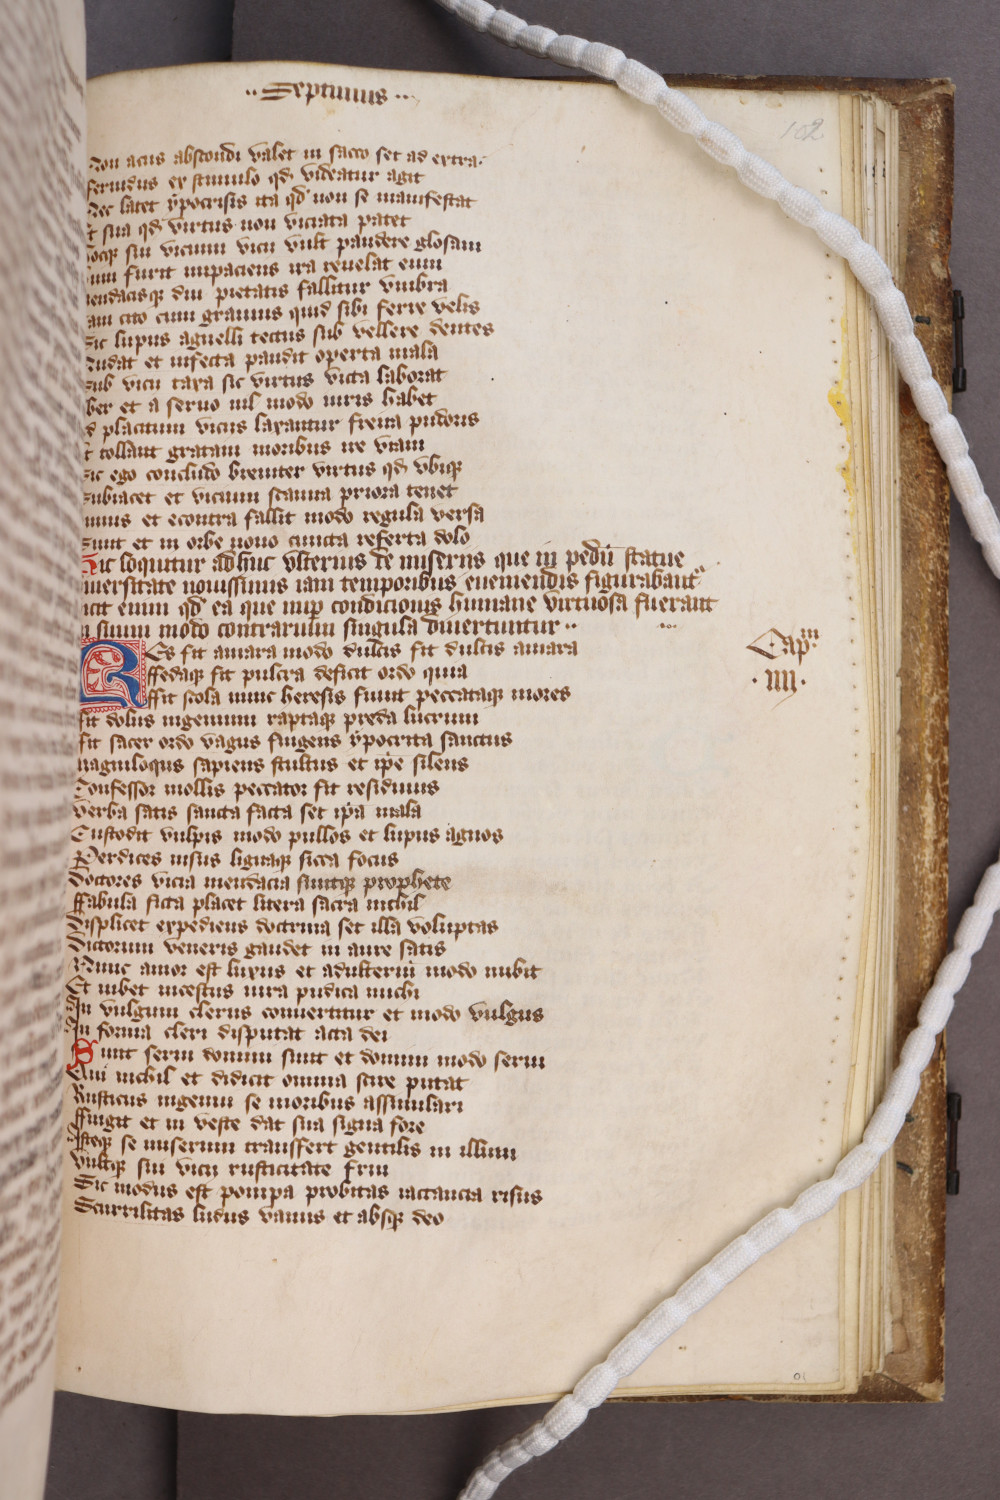 ·· Septimus ··
102
Non acus abscondi valet in sacco set ad extra
feruidus ex stimulo qd videatur agit
Nec latet ypocrisis ita qd non se manifestat
Et sua qd virtus non viciata patet
hocque sui vicium vicii vult pandere glosam
Dum furit impaciens ira reuelat eum
Mendacisque diu pietatis fallitur vmbra
Tam cito cum grauius quid sibi ferre velis
Sic lupus agnelli tectus sub vellere dentes
Nudat et infecta pandit operta mala
Sub vicii taxa sic virtus victa laborat
liber et a seruo nil modo iuris habet
Ad placitum vicus laxantur frena pudoris
Et tollunt gratam moribus ire viam
Sic ego concludo breuiter virtus qd vbique
Subiacet et vicium scanna priora tenet
Primus et econtra fallit modo regula versa
Sunt et in orbe nouo cuncta referta dolo
Hic loquitur adhuc vlterius de miseriis que in pedū statue
diuersitate nouissimis iam temporibus eueniendis figurabantʳ
dicit enim qd ea que nup condicionis humane virtuosa fuerant
in suum modo contrarium singula diuertuntur ··
Capᵐ
· IIII ·
Res fit amara modo dulcis fit dulcis amara
ffedaque fit pulcra deficit ordo quia
ffit scola nunc heresis fiunt peccataque mores
fit dolus ingenium raptaque preda lucrum
fit sacer ordo vagus fingens ypocrita sanctus
Magniloquus sapiens stultus et ipe silens
Confessor mollis peccator fit residiuus
Verba satis sancta facta set ipa mala
Custodit vulpis modo pullos et lupus agnos
Perdices nisus lignaque sicca focus
Doctores vicia mendacia suntque prophete
ffabula ficta placet litera sacra nichil
Displicet expediens doctrina set illa voluptas
Dictorum veneris gaudet in aure satis
Nunc amor est luxus et adulterium modo nubit
Et iubet incestus iura pudica michi
In vulgum clerus conuertitur et modo vulgus
In forma cleri disputat acta dei
Sunt serui domini sunt et domini modo serui
Qui nichil et didicit omnia scire putat
Rusticus ingenui se moribus assimulari
ffingit et in veste dat sua signa fore
Isteque se miserum transfert gentilis in illum
Vultque sui vicii rusticitate frui
Sic modus est pompa probitas iactancia risus
Scurrilitas ludus vanus et absque deo